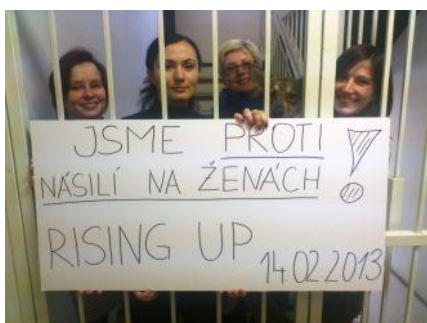 JSME PROTI !
NÁSILÍ NA ŽENÁCH
RISING UP
14.02.2013